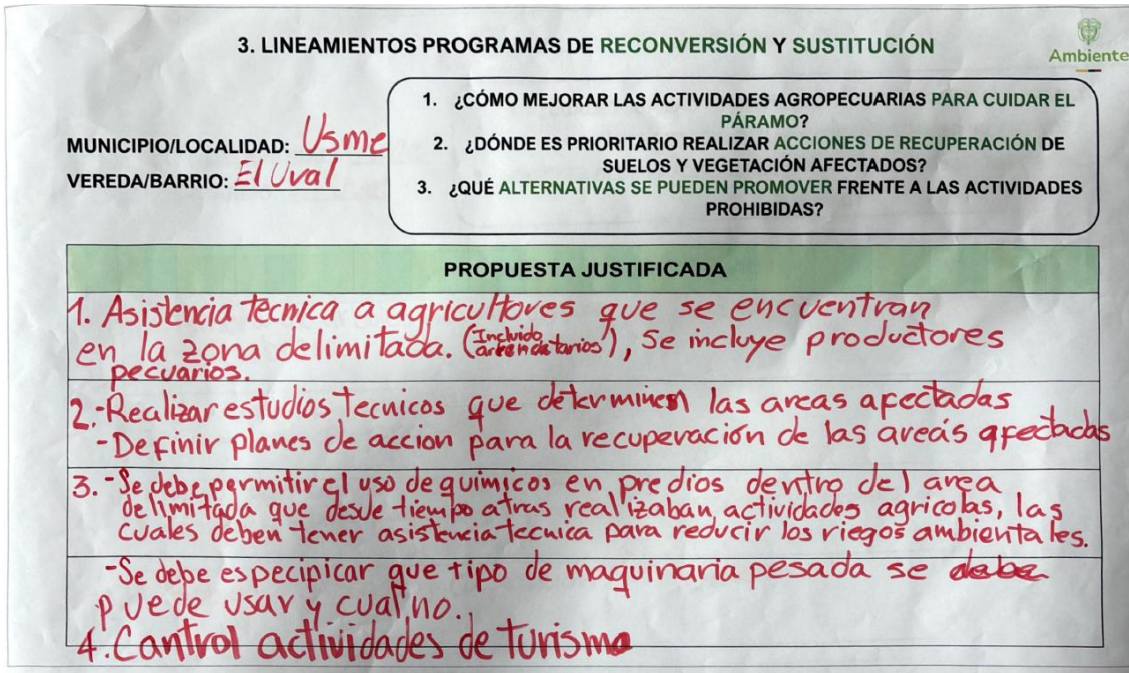 3. LINEAMIENTOS PROGRAMAS DE RECONVERSIÓN Y SUSTITUCIÓN
Ambiente
MUNICIPIO/LOCALIDAD: Usme
VEREDA/BARRIO: El Uval
1. ¿CÓMO MEJORAR LAS ACTIVIDADES AGROPECUARIAS PARA CUIDAR EL
PÁRAMO?
2. ¿DÓNDE ES PRIORITARIO REALIZAR ACCIONES DE RECUPERACIÓN DE
SUELOS Y VEGETACIÓN AFECTADOS?
3. ¿QUÉ ALTERNATIVAS SE PUEDEN PROMOVER FRENTE A LAS ACTIVIDADES
PROHIBIDAS?
PROPUESTA JUSTIFICADA
1. Asistencia tecnica a agricultores que se encuentran
en la zona delimitada. (Incluido arrendatarios), Se incluye productores
pecuarios.
2.-Realizar estudios tecnicos que determinen las areas afectadas
-Definir planes de accion para la recuperación de las areás afectadas
3. -Se debe permitir el uso de quimicos en predios dentro del area
delimitada que desde tiempo atras realizaban actividades agricolas, las
cuales deben tener asistencia tecnica para reducir los riegos ambientales.
-Se debe especipicar que tipo de maquinaria pesada se debe
puede usar y cual no.
4. Cantrol actividades de turismo